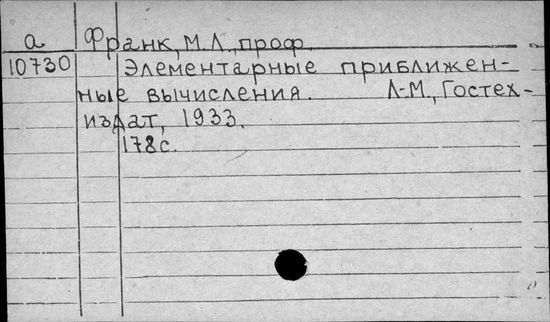 а Франк, М.Л., проф.
10730 Элементарные приближен-
ные вычисления. Л-М., Гостех-
издат, 1933.
178с.